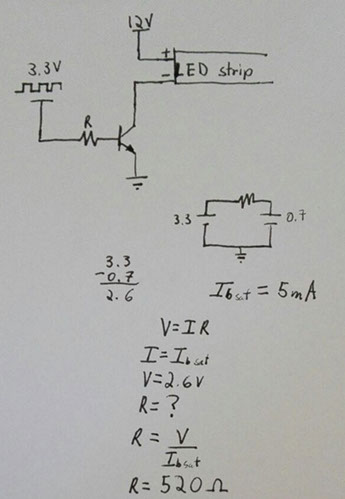 12V
+
3.3V
LED strip
-
R
3.3
0.7
3.3
-0.7
2.6
Ib sat = 5mA
V=IR
I=Ib sat
V=2.6V
R=?
R = V
Ib sat
R=520Ω